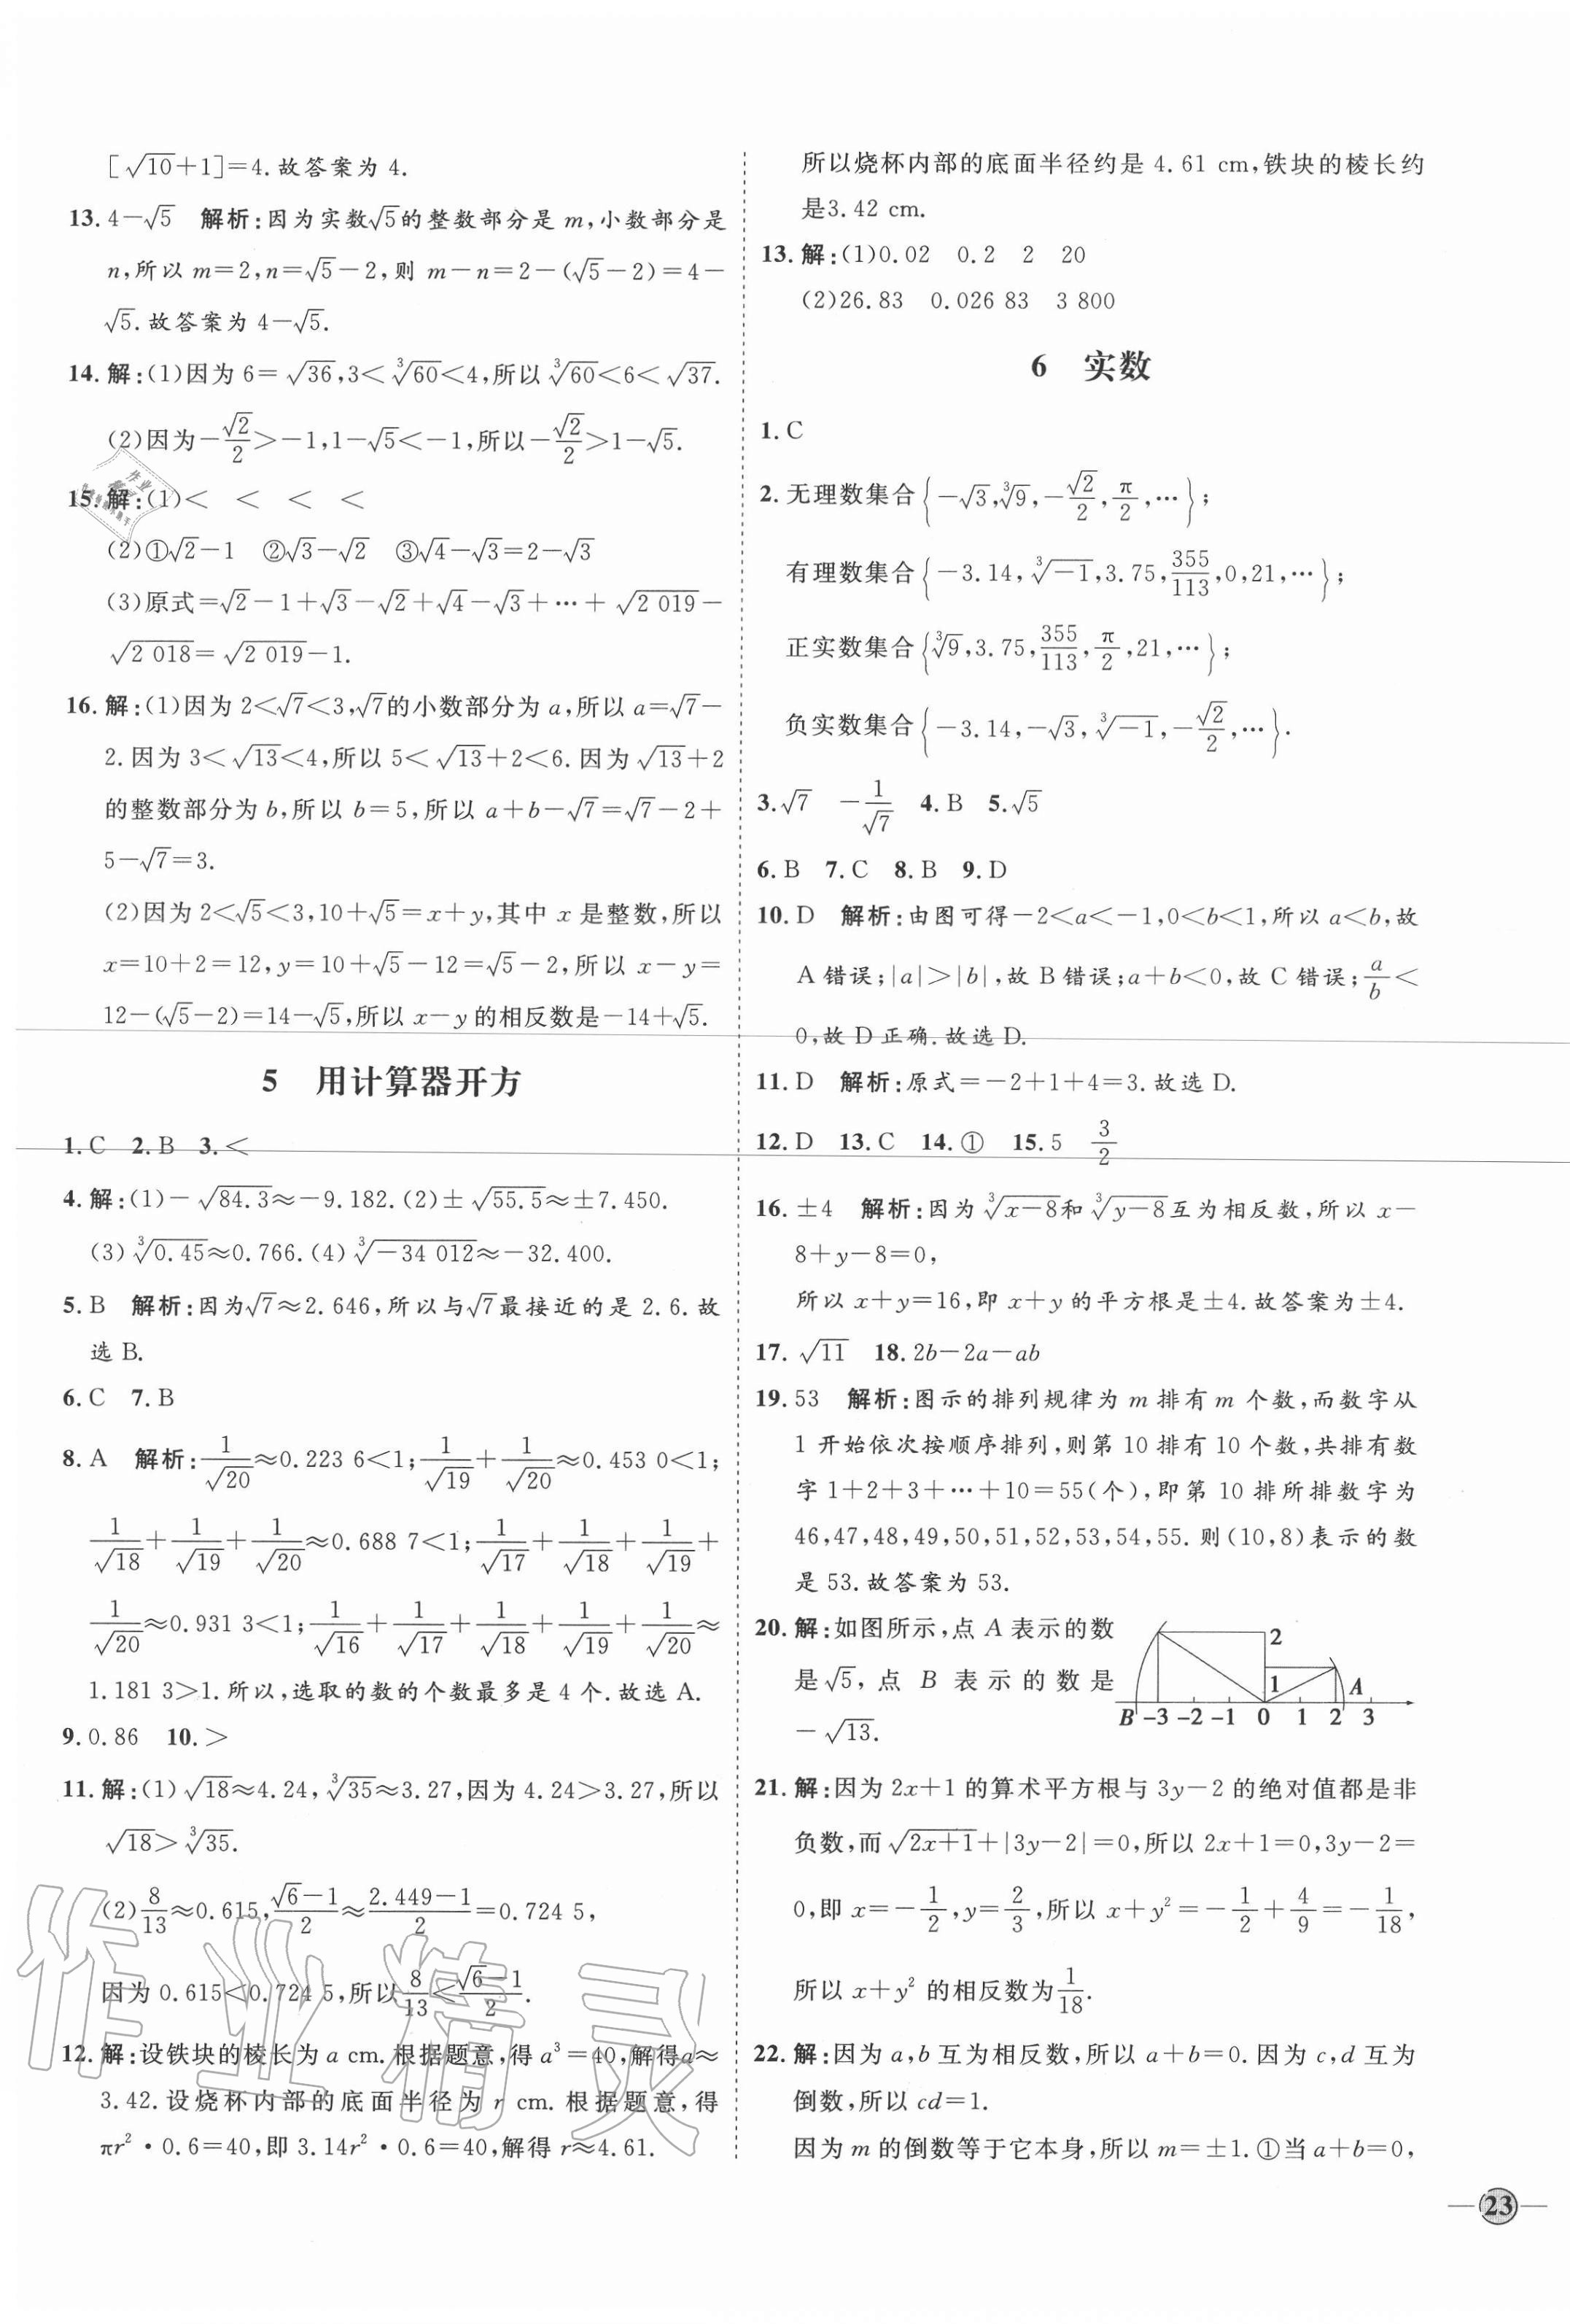 [√10+1]=4.故答案为 4.
13. 4-√5 解析:因为实数√5的整数部分是 m,小数部分是
n,所以 m=2,n=√5-2,则 m-n=2-(√5-2)=4-
√5.故答案为 4-√5.
14. 解:(1)因为 6=√36,3<∛60<4,所以∛60<6<√37.
(2)因为-√2/2>-1,1-√5<-1,所以-√2/2>1-√5.
15. 解:(1)< < < <
(2)①√2-1 ②√3-√2 ③√4-√3=2-√3
(3)原式=√2-1+√3-√2+√4-√3+…+√2 019-
√2 018=√2 019-1.
16. 解:(1)因为 2<√7<3,√7的小数部分为 a,所以 a=√7-
2.因为 3<√13<4,所以 5<√13+2<6.因为√13+2
的整数部分为 b,所以 b=5,所以 a+b-√7=√7-2+
5-√7=3.
(2)因为 2<√5<3,10+√5=x+y,其中 x 是整数,所以
x=10+2=12,y=10+√5-12=√5-2,所以 x-y=
12-(√5-2)=14-√5,所以 x-y 的相反数是-14+√5.
5 用计算器开方
1. C 2. B 3. <
4. 解:(1)-√84.3≈-9.182.(2)±√55.5≈±7.450.
(3)∛0.45≈0.766.(4)∛-34 012≈-32.400.
5. B 解析:因为√7≈2.646,所以与√7最接近的是 2.6.故
选 B.
6. C 7. B
8. A 解析:1/√20≈0.223 6<1;1/√19+1/√20≈0.453 0<1;
1/√18+1/√19+1/√20≈0.688 7<1;1/√17+1/√18+1/√19+
1/√20≈0.931 3<1;1/√16+1/√17+1/√18+1/√19+1/√20≈
1.181 3>1.所以,选取的数的个数最多是 4 个.故选 A.
9. 0.86 10. >
11. 解:(1)√18≈4.24,∛35≈3.27,因为 4.24>3.27,所以
√18>∛35.
(2)8/13≈0.615,(√6-1)/2≈(2.449-1)/2=0.724 5,
因为 0.615<0.724 5,所以8/13<(√6-1)/2.
12. 解:设铁块的棱长为 a cm.根据题意,得 a³=40,解得a≈
3.42.设烧杯内部的底面半径为 r cm.根据题意,得
πr²·0.6=40,即 3.14r²·0.6=40,解得 r≈4.61.
所以烧杯内部的底面半径约是 4.61 cm,铁块的棱长约
是3.42 cm.
13. 解:(1)0.02 0.2 2 20
(2)26.83 0.026 83 3 800
6 实数
1. C
2. 无理数集合{-√3,∛9,-√2/2,π/2,…};
有理数集合{-3.14,∛-1,3.75,355/113,0,21,…};
正实数集合{∛9,3.75,355/113,π/2,21,…};
负实数集合{-3.14,-√3,∛-1,-√2/2,…}.
3. √7 -1/√7 4. B 5. √5
6. B 7. C 8. B 9. D
10. D 解析:由图可得-2<a<-1,0<b<1,所以 a<b,故
A 错误;|a|>|b|,故 B 错误;a+b<0,故 C 错误;a/b<
0,故 D 正确.故选 D.
11. D 解析:原式=-2+1+4=3.故选 D.
12. D 13. C 14. ① 15. 5 3/2
16. ±4 解析:因为∛x-8和∛y-8互为相反数,所以 x-
8+y-8=0,
所以 x+y=16,即 x+y 的平方根是±4.故答案为±4.
17. √11 18. 2b-2a-ab
19. 53 解析:图示的排列规律为 m 排有 m 个数,而数字从
1 开始依次按顺序排列,则第 10 排有 10 个数,共排有数
字 1+2+3+…+10=55(个),即第 10 排所排数字为
46,47,48,49,50,51,52,53,54,55.则(10,8)表示的数
是 53.故答案为 53.
20. 解:如图所示,点 A 表示的数
是√5,点 B 表示的数是
-√13.
2
1 A
B -3 -2 -1 0 1 2 3
21. 解:因为 2x+1 的算术平方根与 3y-2 的绝对值都是非
负数,而√2x+1+|3y-2|=0,所以 2x+1=0,3y-2=
0,即 x=-1/2,y=2/3,所以 x+y²=-1/2+4/9=-1/18,
所以 x+y² 的相反数为1/18.
22. 解:因为 a,b 互为相反数,所以 a+b=0.因为 c,d 互为
倒数,所以 cd=1.
因为 m 的倒数等于它本身,所以 m=±1.①当 a+b=0,
23
作业精灵